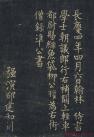 長慶四年四月六日翰林侍書
學士朝議郎行右補闕上輕車
都尉賜緋魚袋柳公權為右街
僧錄准公書
強演邵建和刻